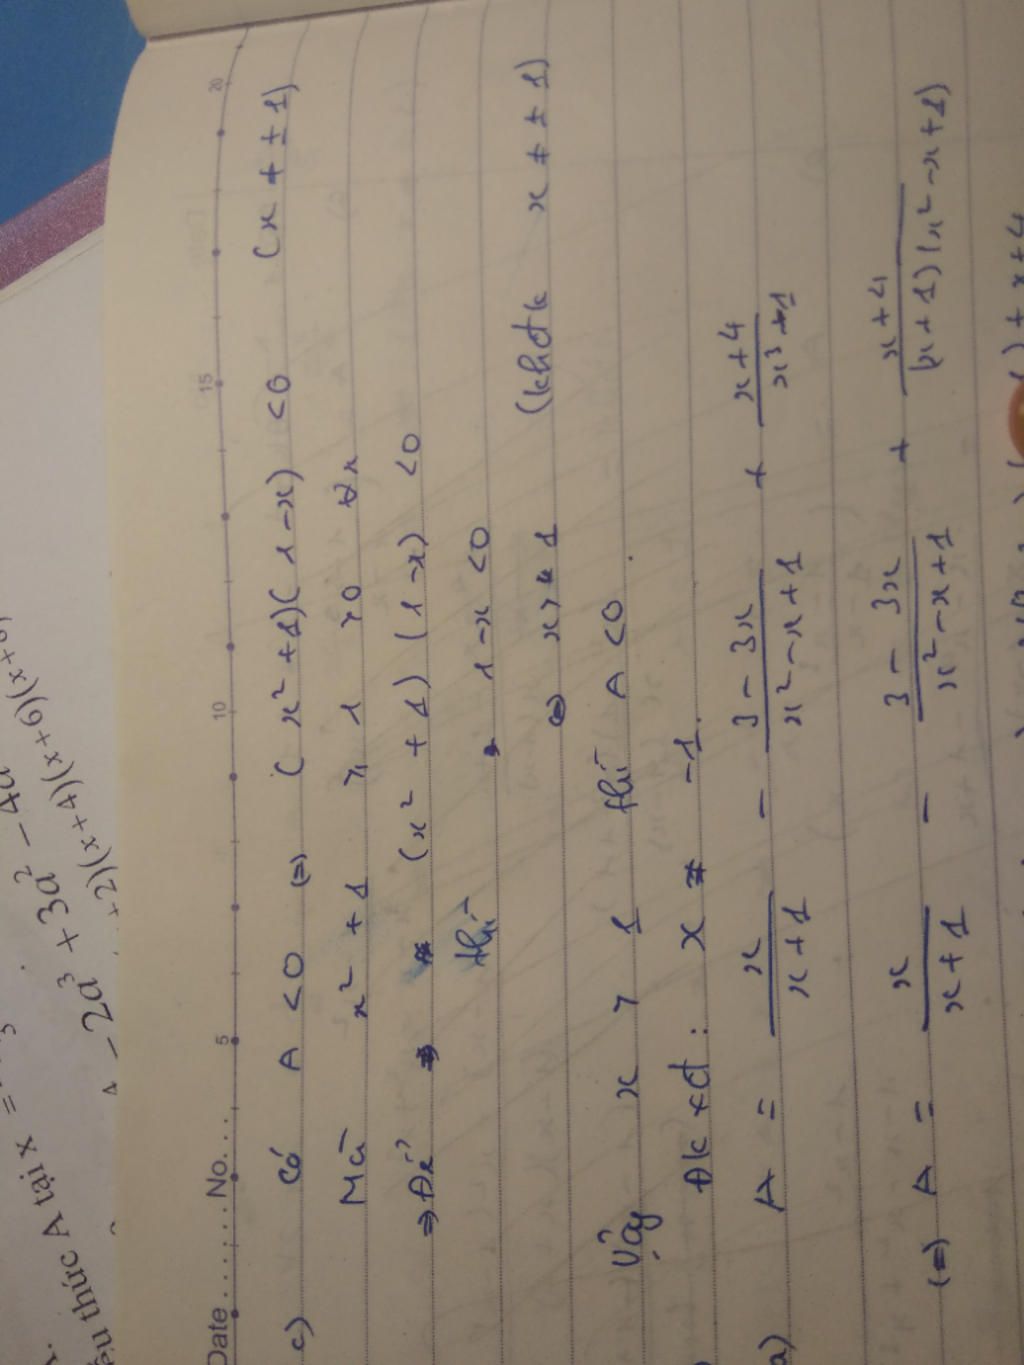 A tại x =
ểu thức
- 2a³ + 3a² - 4a
+2)(x+4)(x+6)(x+8)
Date ....... No. ...
5 10 15 20
c) Có A < 0 (=) (x² + 1)(1 - x) < 0 (x ≠ ± 1)
Mà x² + 1 ≥ 1 > 0 ∀x
⇒ Để (x² + 1)(1 - x) < 0
thì 1 - x < 0
(=) x > 1 (khđk x ≠ ± 1)
Vậy x > 1 thì A < 0.
Đkxđ: x ≠ -1.
a) A = x/(x+1) - (3 - 3x)/(x² - x + 1) + (x+4)/(x³ + 1)
(=) A = x/(x+1) - (3 - 3x)/(x² - x + 1) + (x+4)/((x+1)(x² - x + 1))
) + x + 4